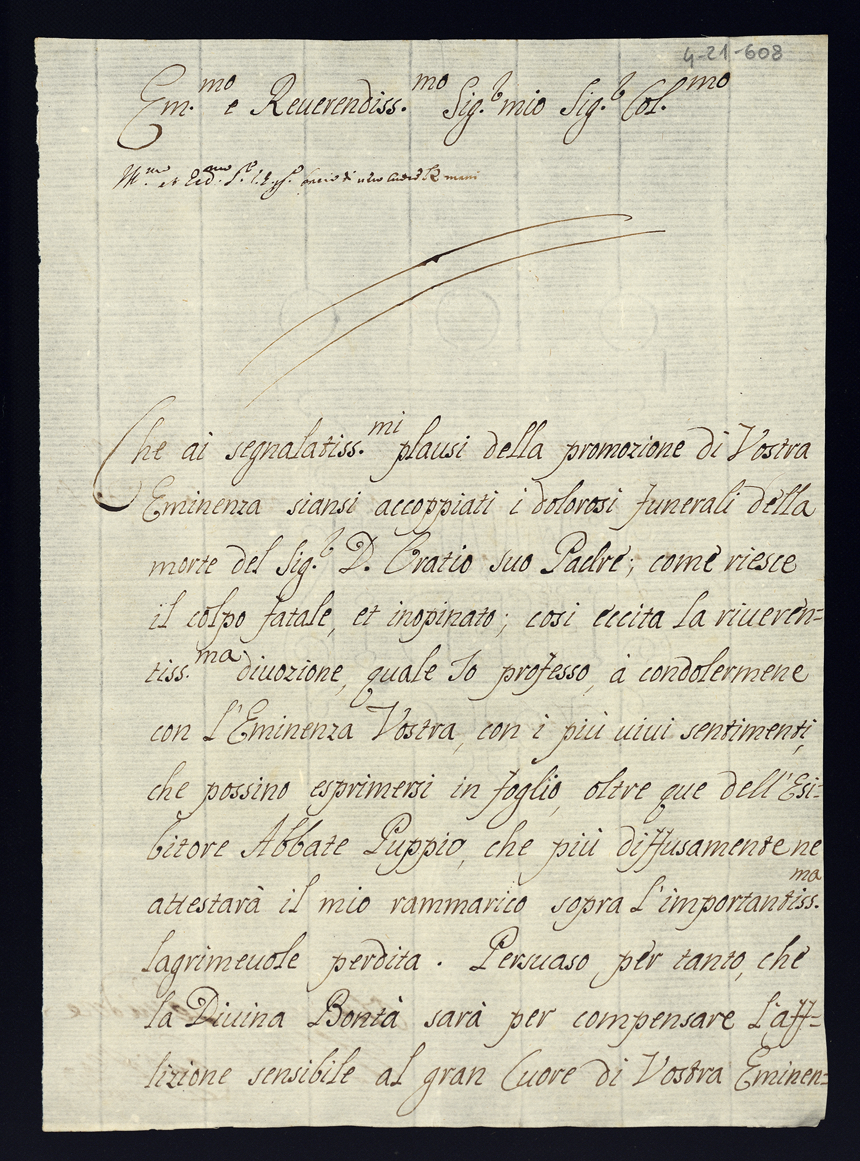 4-21-608
Em.mo e Reuerendiss.mo Sig.r mio Sig.r Col.mo
Che ai segnalatiss.mi plausi della promozione di Vostra
Eminenza siansi accoppiati i dolorosi funerali della
morte del Sig.r D. Oratio suo Padre; come riesce
il colpo fatale, et inopinato; cosi eccita la riueren=
tiss.ma diuozione, quale Io professo, à condolermene
con l'Eminenza Vostra, con i più uiui sentimenti,
che possino esprimersi in foglio, oltre que dell'Esi=
bitore Abbate Puppio, che più diffusamente ne
attestarà il mio rammarico sopra l'importantiss.ma
lagrimeuole perdita. Persuaso per tanto, che
la Diuina Bontà sarà per compensare l'aff=
lizione sensibile al gran Cuore di Vostra Eminen=